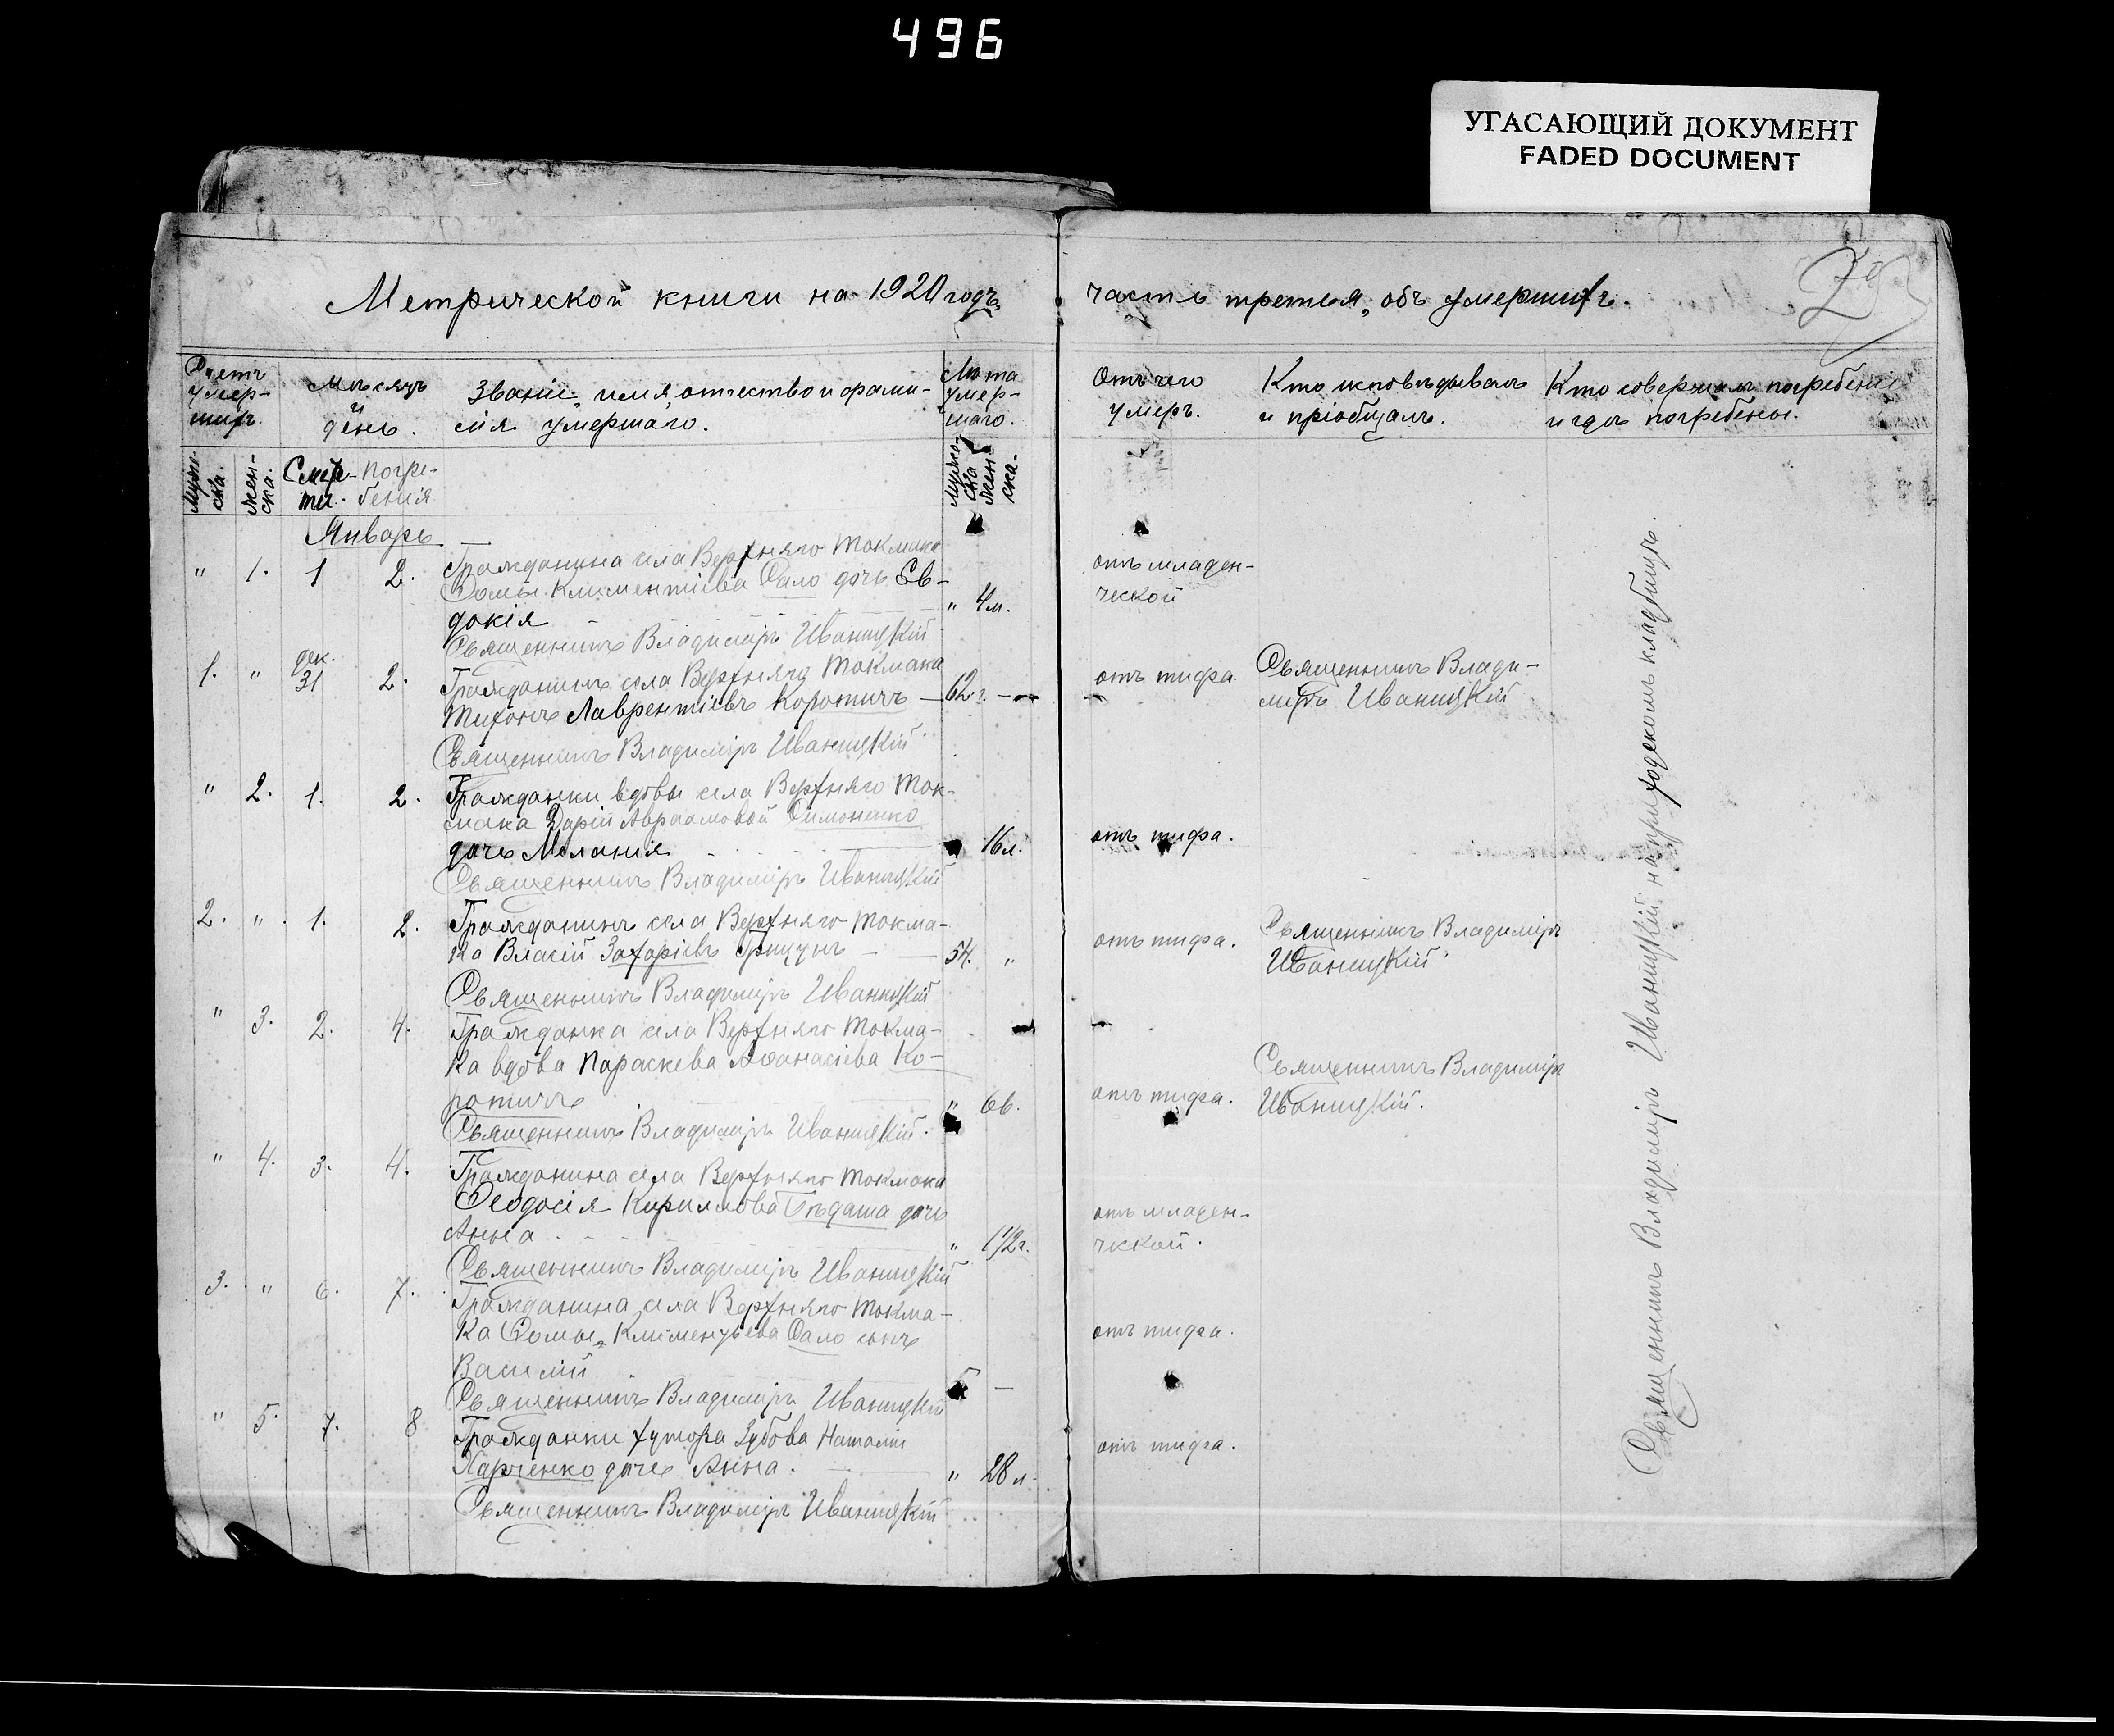 496
УГАСАЮЩИЙ ДОКУМЕНТ
FADED DOCUMENT
Метрической книги на 1920 годъ,
часть третья, объ умершихъ.
Счетъ умер-шихъ.
Мѣсяцъ и день.
Званіе, имя, отчество и фами-
лія умершаго.
Лѣта умер-шаго.
Отъ чего умеръ.
Кто исповѣдывалъ
и пріобщалъ.
Кто совершалъ погребеніе
и гдѣ погребены.
Муже-ска.
Жен-ска.
Смер-ти.
Погре-бенія
Муже-ска
Жен-ска.
Январь
" 1. 1 2. Гражданина села Верхняго Токмака
Ѳомы Климентіева Сало дочь Ев-
докія " 4м. отъ младен-
ческой
Священникъ Владиміръ Иваницкій
1. " дек. 31 2. Гражданинъ села Верхняго Токмака
Тихонъ Лаврентіевъ Коротичъ — 62 г. — отъ тифа. Священникъ Влади-
міръ Иваницкій
Священникъ Владиміръ Иваницкій
" 2. 1. 2. Гражданки вдовы села Верхняго Ток-
мака Даріи Авраамовой Симоненко
дочь Меланія 16 л. отъ тифа.
Священникъ Владиміръ Иваницкій
2. " 1. 2. Гражданинъ села Верхняго Токма-
ка Власій Захаріевъ Грицунъ — 54. " отъ тифа. Священникъ Владиміръ
Иваницкій
Священникъ Владиміръ Иваницкій
" 3. 2. 4. Гражданка села Верхняго Токма-
ка вдова Параскева Аѳанасіева Ко-
ротичъ " отъ тифа. Священникъ Владиміръ
Иваницкій.
Священникъ Владиміръ Иваницкій.
" 4. 3. 4. Гражданина села Верхняго Токмака
Ѳеодосія Кириллова дочь
Анна " 1 1/2 г. отъ младен-
ческой.
Священникъ Владиміръ Иваницкій
3. " 6. 7. Гражданина села Верхняго Токма-
ка Ѳомы Климентьева Сало сынъ
Василій — отъ тифа.
Священникъ Владиміръ Иваницкій
" 5. 7. 8 Гражданки хутора Зубова Наталіи
Харченко дочь Анна. " 28 л. отъ тифа.
Священникъ Владиміръ Иваницкій
Священникъ Владиміръ Иваницкій на приходскомъ кладбищѣ.